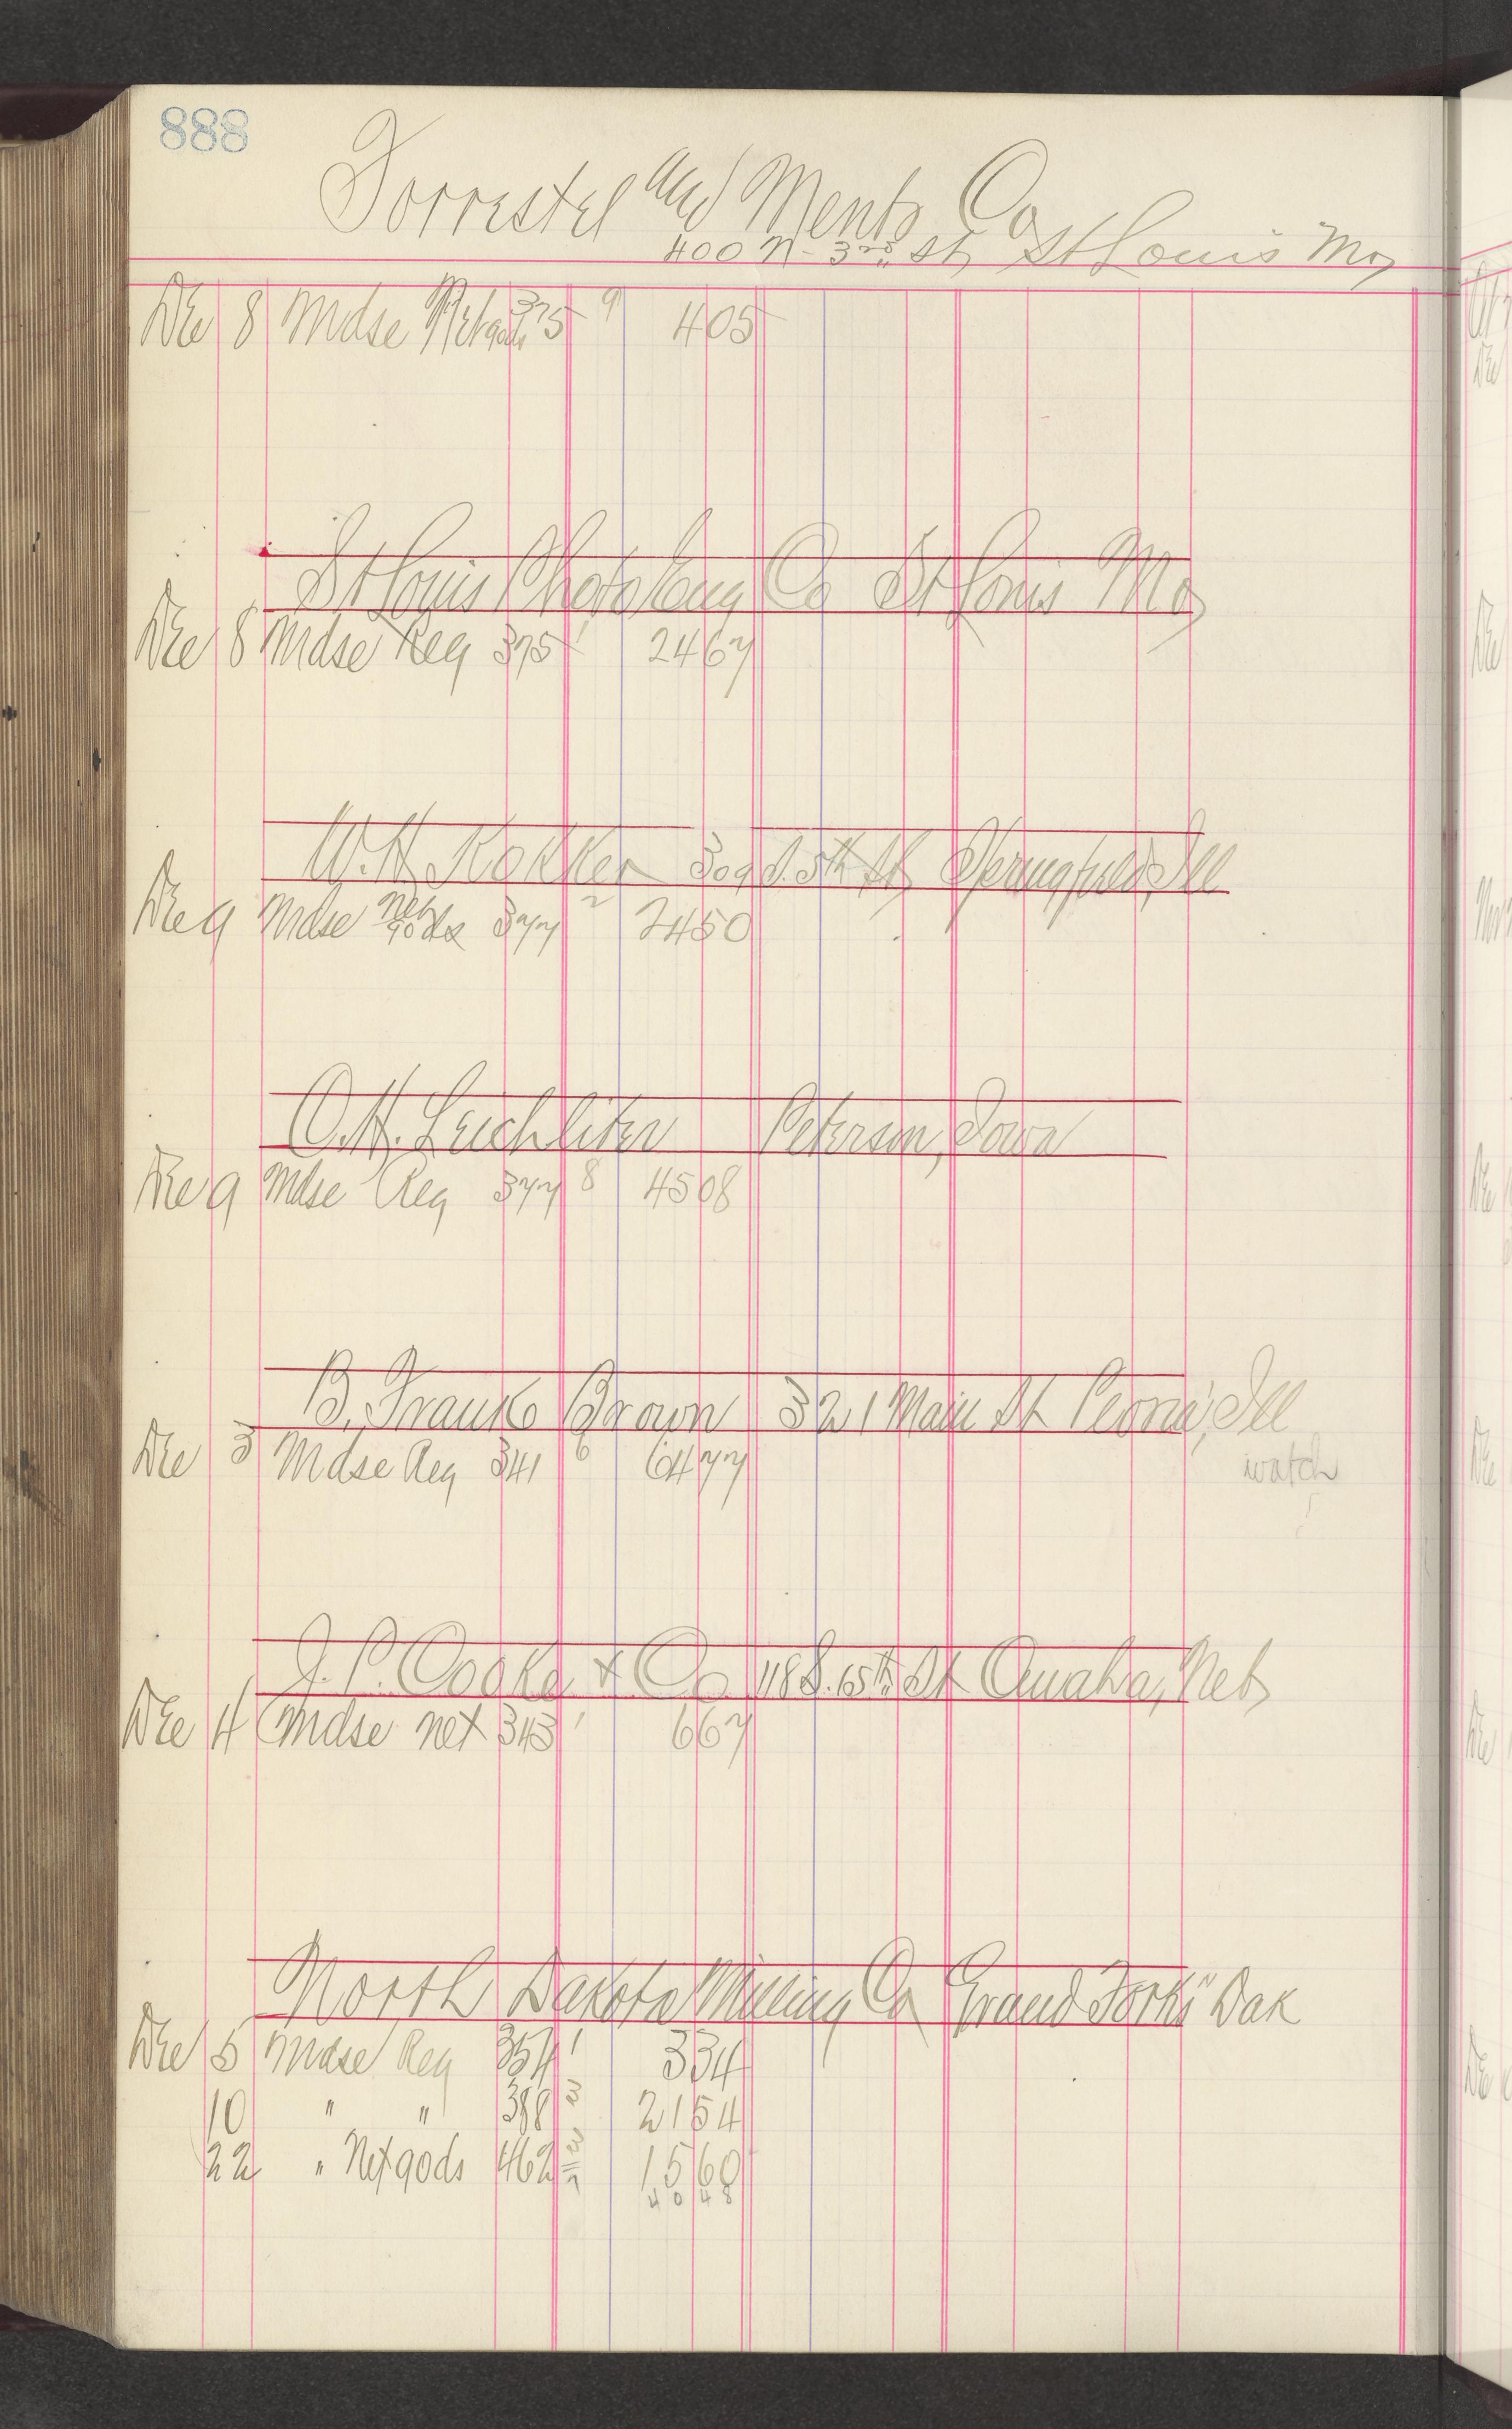 888
Forrestel and Mentz Co
400 N- 3rd St, St Louis Mo,
Dec 8 Mdse Net gods 375 9 405
St Louis Photo Eng Co St Louis Mo,
Dec 8 Mdse Reg 375 1 2467
W.H. Kokken 309 S. 5th St, Springfield, Ill
Dec 9 Mdse Net gods 377 2 2450
O.H. Leichliter Peterson, Iowa
Dec 9 Mdse Reg 377 8 4508
B. Frank Brown 321 Main St Peoria, Ill
Dec 3 Mdse Reg 341 6 6477 watch
J. P. Cooke & Co 118 S. 15th St Omaha, Neb,
Dec 4 Mdse net 343 1 667
North Dakota Milling Co Grand Forks" Dak
Dec 5 Mdse Reg 354 1 334
10 " " 388 2154
22 " Net gods 462 1560
4048